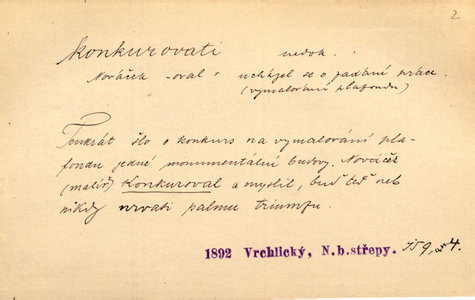 2
konkurovati nedok.
Nováček -oval = ucházel se o zadání práce
(vymalování plafondu)
Tenkrát šlo o konkurs na vymalování pla-
fondu jedné monumentalní budovy. Nováček
(malíř) Konkuroval a myslil, buď teď neb
nikdy urvati palmu triumfu.
1892 Vrchlický, N.b.střepy. 159,